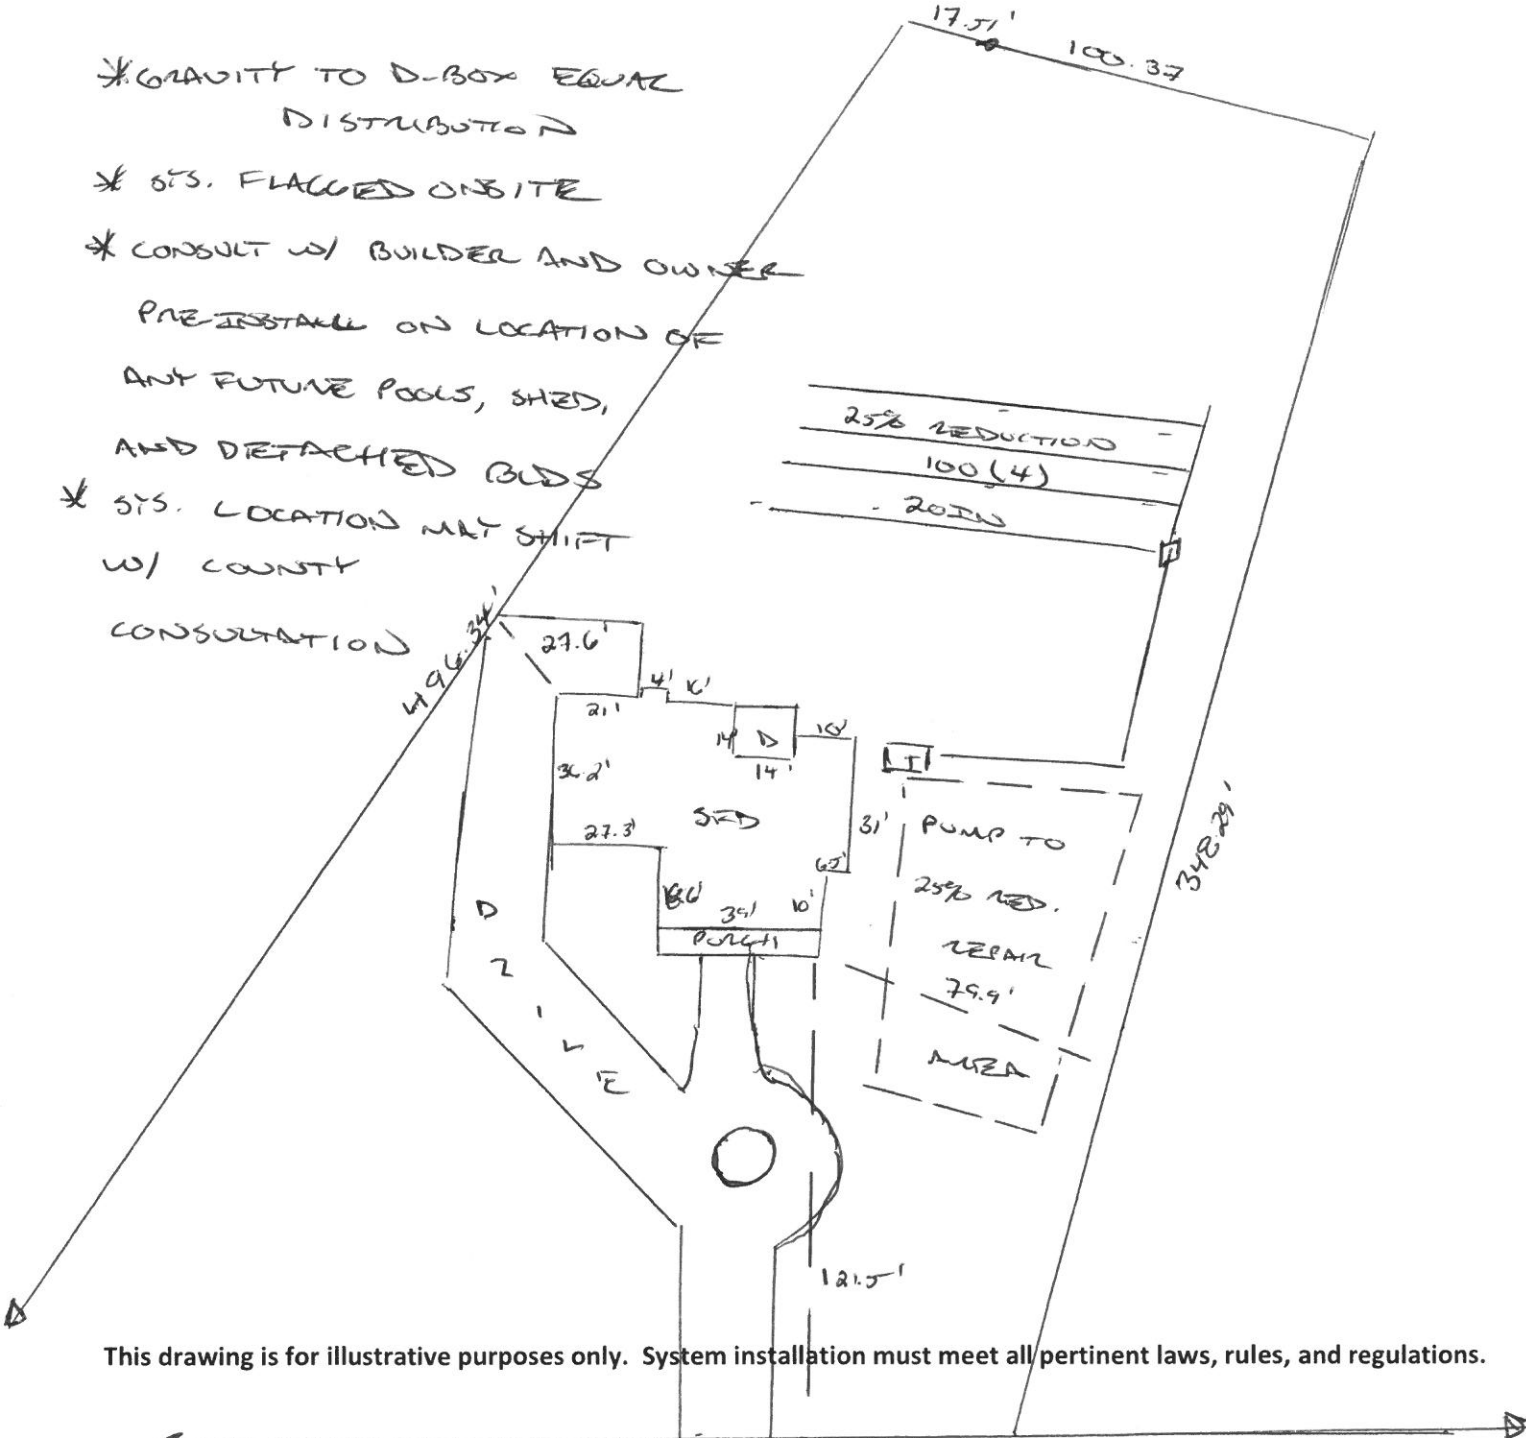 17.51'
100.37
* GRAVITY TO D-BOX EQUAL
DISTRIBUTION
* SYS. FLAGGED ONSITE
* CONSULT W/ BUILDER AND OWNER
PRE-INSTALL ON LOCATION OF
ANY FUTURE POOLS, SHED,
AND DETACHED BLDS
* SYS. LOCATION MAY SHIFT
W/ COUNTY
CONSULTATION
25% REDUCTION
100 (4)
20IN
496.34'
27.6'
4'
16'
21'
14'
D
10'
14'
T
36.2'
SFD
31'
27.3'
65'
10'
39'
PORCH
PUMP TO
25% RED.
REPAIR
79.9'
AREA
348.29'
DRIVE
121.5'
This drawing is for illustrative purposes only. System installation must meet all pertinent laws, rules, and regulations.